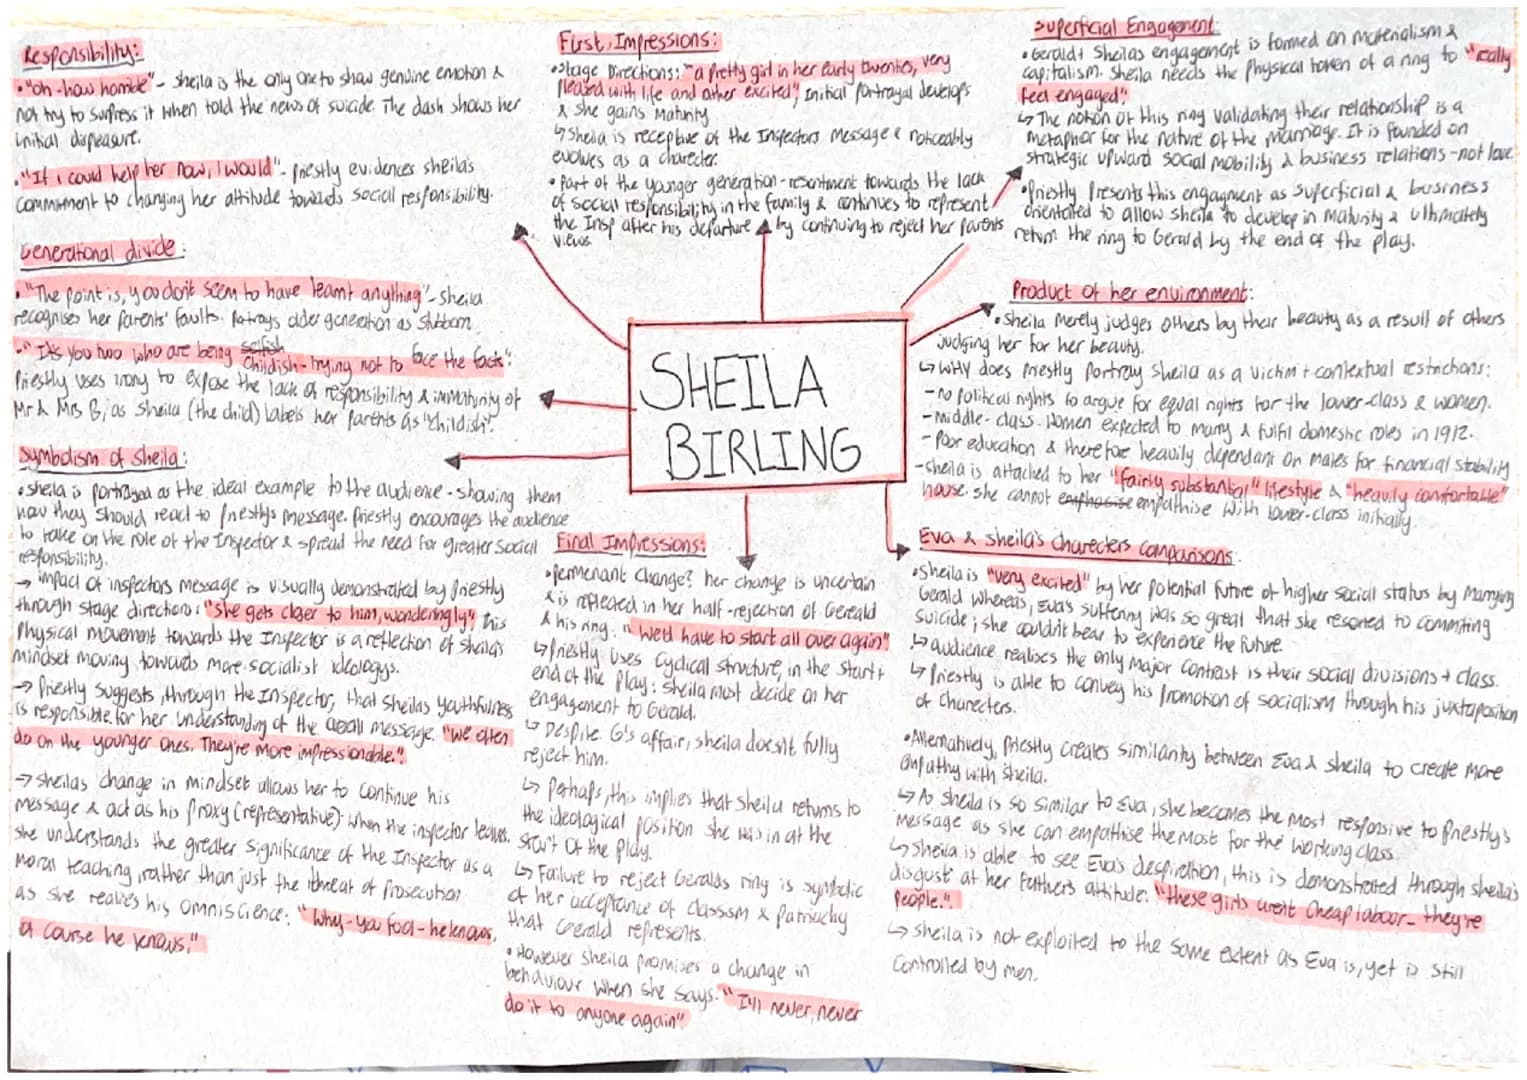 SHEILA
BIRLING
Responsibility:
• "Oh-how horrible" - Sheila is the only one to show genuine emotion &
not try to supress it when told the news of suicide. The dash shows her
initial displeasure.
• "If I could help her now, I would" - priestly evidences sheila's
commitment to changing her attitude towards social responsibility.
Generational divide:
• "The point is, you don't seem to have learnt anything" - sheila
recognises her parents' faults. Portrays older generation as stubborn.
• "It's you two who are being selfish childish - trying not to face the facts".
Priestley uses irony to expose the lack of responsibility & immaturity of
Mr & Mrs B, as Sheila (the child) labels her parents as "childish".
Symbolism of Sheila:
• Sheila is portrayed as the ideal example to the audience - showing them
how they should react to Priestly's message. Priestly encourages the audience
to take on the role of the Inspector & spread the need for greater social
responsibility.
→ impact of inspectors message is visually demonstrated by priestly
through stage directions: "she gets closer to him, wonderingly". This
Physical movement towards the Inspector is a reflection of Sheila's
mindset moving towards more socialist ideologys.
→ Priestly suggests, through the Inspector, that Sheilas youthfulness
is responsible for her understanding of the overall message. "we often
do on the younger ones. They're more impressionable".
→ Sheilas change in mindset allows her to continue his
message & act as his proxy (representative). When the inspector leaves,
she understands the greater significance of the Inspector as a
moral teaching, rather than just the threat of prosecution
as she realises his omniscience: "Why - you fool - he knows.
Of course he knows."
First Impressions:
• Stage Directions: "a pretty girl in her early twenties, very
pleased with life and rather excited", Initial portrayal develops
& she gains maturity
↳ Sheila is receptive of the Inspectors message & noticeably
evolves as a charecter.
• Part of the younger generation - resentment towards the lack
of social responsibility in the family & continues to represent
the Insp after his departure by continuing to reject her parents
views.
Superficial Engagement:
• Gerald + Sheilas engagement is formed on materialism &
capitalism. Sheila needs the physical token of a ring to "really
feel engaged".
↳ The notion of this ring validating their relationship is a
metaphor for the nature of the marriage. It is founded on
strategic upward social mobility & business relations - not love.
• Priestly presents this engagment as superficial & business
orientated to allow sheila to develop in maturity & ultimately
return the ring to Gerald by the end of the play.
Product of her environment:
• Sheila merely judges others by their beauty as a result of others
judging her for her beauty.
↳ WHY does priestly portray sheila as a victim + contextual restrictions:
- no political rights to argue for equal rights for the lower-class & women.
- Middle-class-women expected to marry & fulfil domestic roles in 1912.
- Poor education & therefore heavily dependant on males for financial stability
- sheila is attached to her "fairly substantial" lifestyle & "heavily comfortable"
house. she cannot emphasise empathise with lower-class initially.
Final Impressions:
• Permenant change? her change is uncertain
& is reflected in her half-rejection of Gereald
& his ring. "We'd have to start all over again"
↳ Priestly uses cyclical structure, in the start +
end of the play: Sheila must decide on her
engagement to Gerald.
↳ Despite G's affair, sheila doesn't fully
reject him.
↳ Perhaps, this implies that Sheila returns to
the ideological position she was in at the
start of the play.
↳ Failure to reject Geralds ring is symbolic
of her acceptance of classism & patriachy
that Gerald represents.
• However Sheila promises a change in
behaviour when she says: "I'll never, never
do it to anyone again"
Eva & Sheila's charecters comparisons:
• Sheila is "very excited" by her potential future of higher social status by marrying
Gerald whereas, Eva's suffering was so great that she resorted to commiting
suicide; she couldn't bear to experience the future.
↳ audience realises the only major contrast is their social divisions + class.
↳ Priestly is able to convey his promotion of socialism through his juxtaposition
of charecters.
• Alternatively, Priestly creates similarity between Eva & sheila to create more
empathy with Sheila.
↳ As Sheila is so similar to Eva, she becomes the most responsive to Priestly's
message as she can empathise the most for the working class.
↳ Sheila is able to see Eva's despiretion, this is demonstrated through sheila's
disgust at her fathers attitude: "these girls arent cheap labour - they're
people."
↳ Sheila is not exploited to the same extent as Eva is, yet is still
controlled by men.